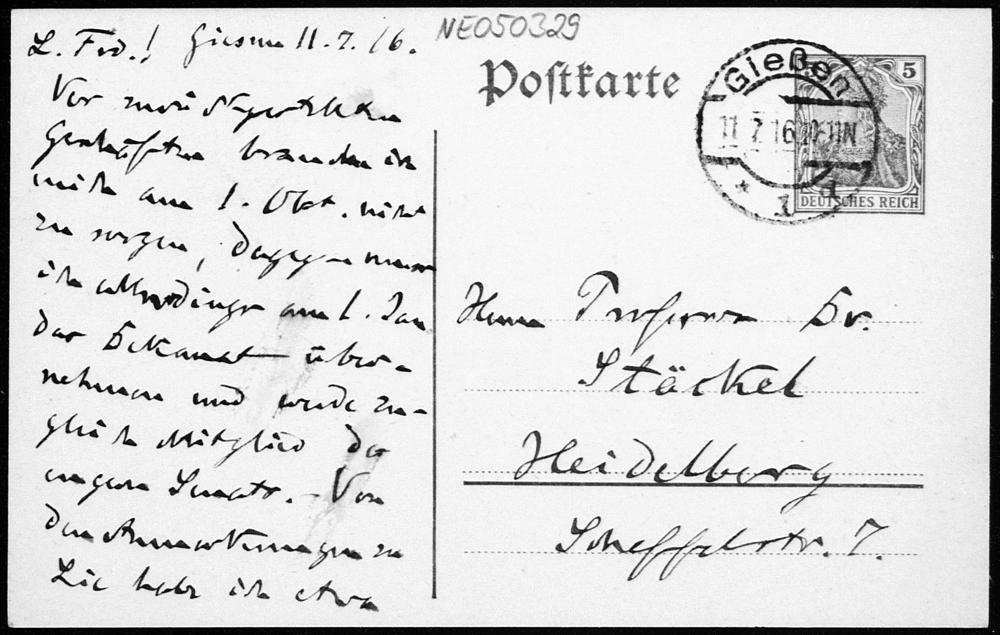 NE050329
L. Frd.! Giessen 11.7.16.
Vor
Geschäften brauche ich
mich am 1. Okt. nicht
zu sorgen, dagegen muss
ich allerdings am 1. Jan
das Dekanat über-
nehmen und werde zu-
gleich Mitglied des
engeren Senats. - Von
den Anmerkungen zu
Lie habe ich etwa
Postkarte
Gießen
11.7.16.
* 1 d
5
DEUTSCHES REICH
Herrn Professor Dr.
Stäckel
Heidelberg
Scheffelstr. 7.